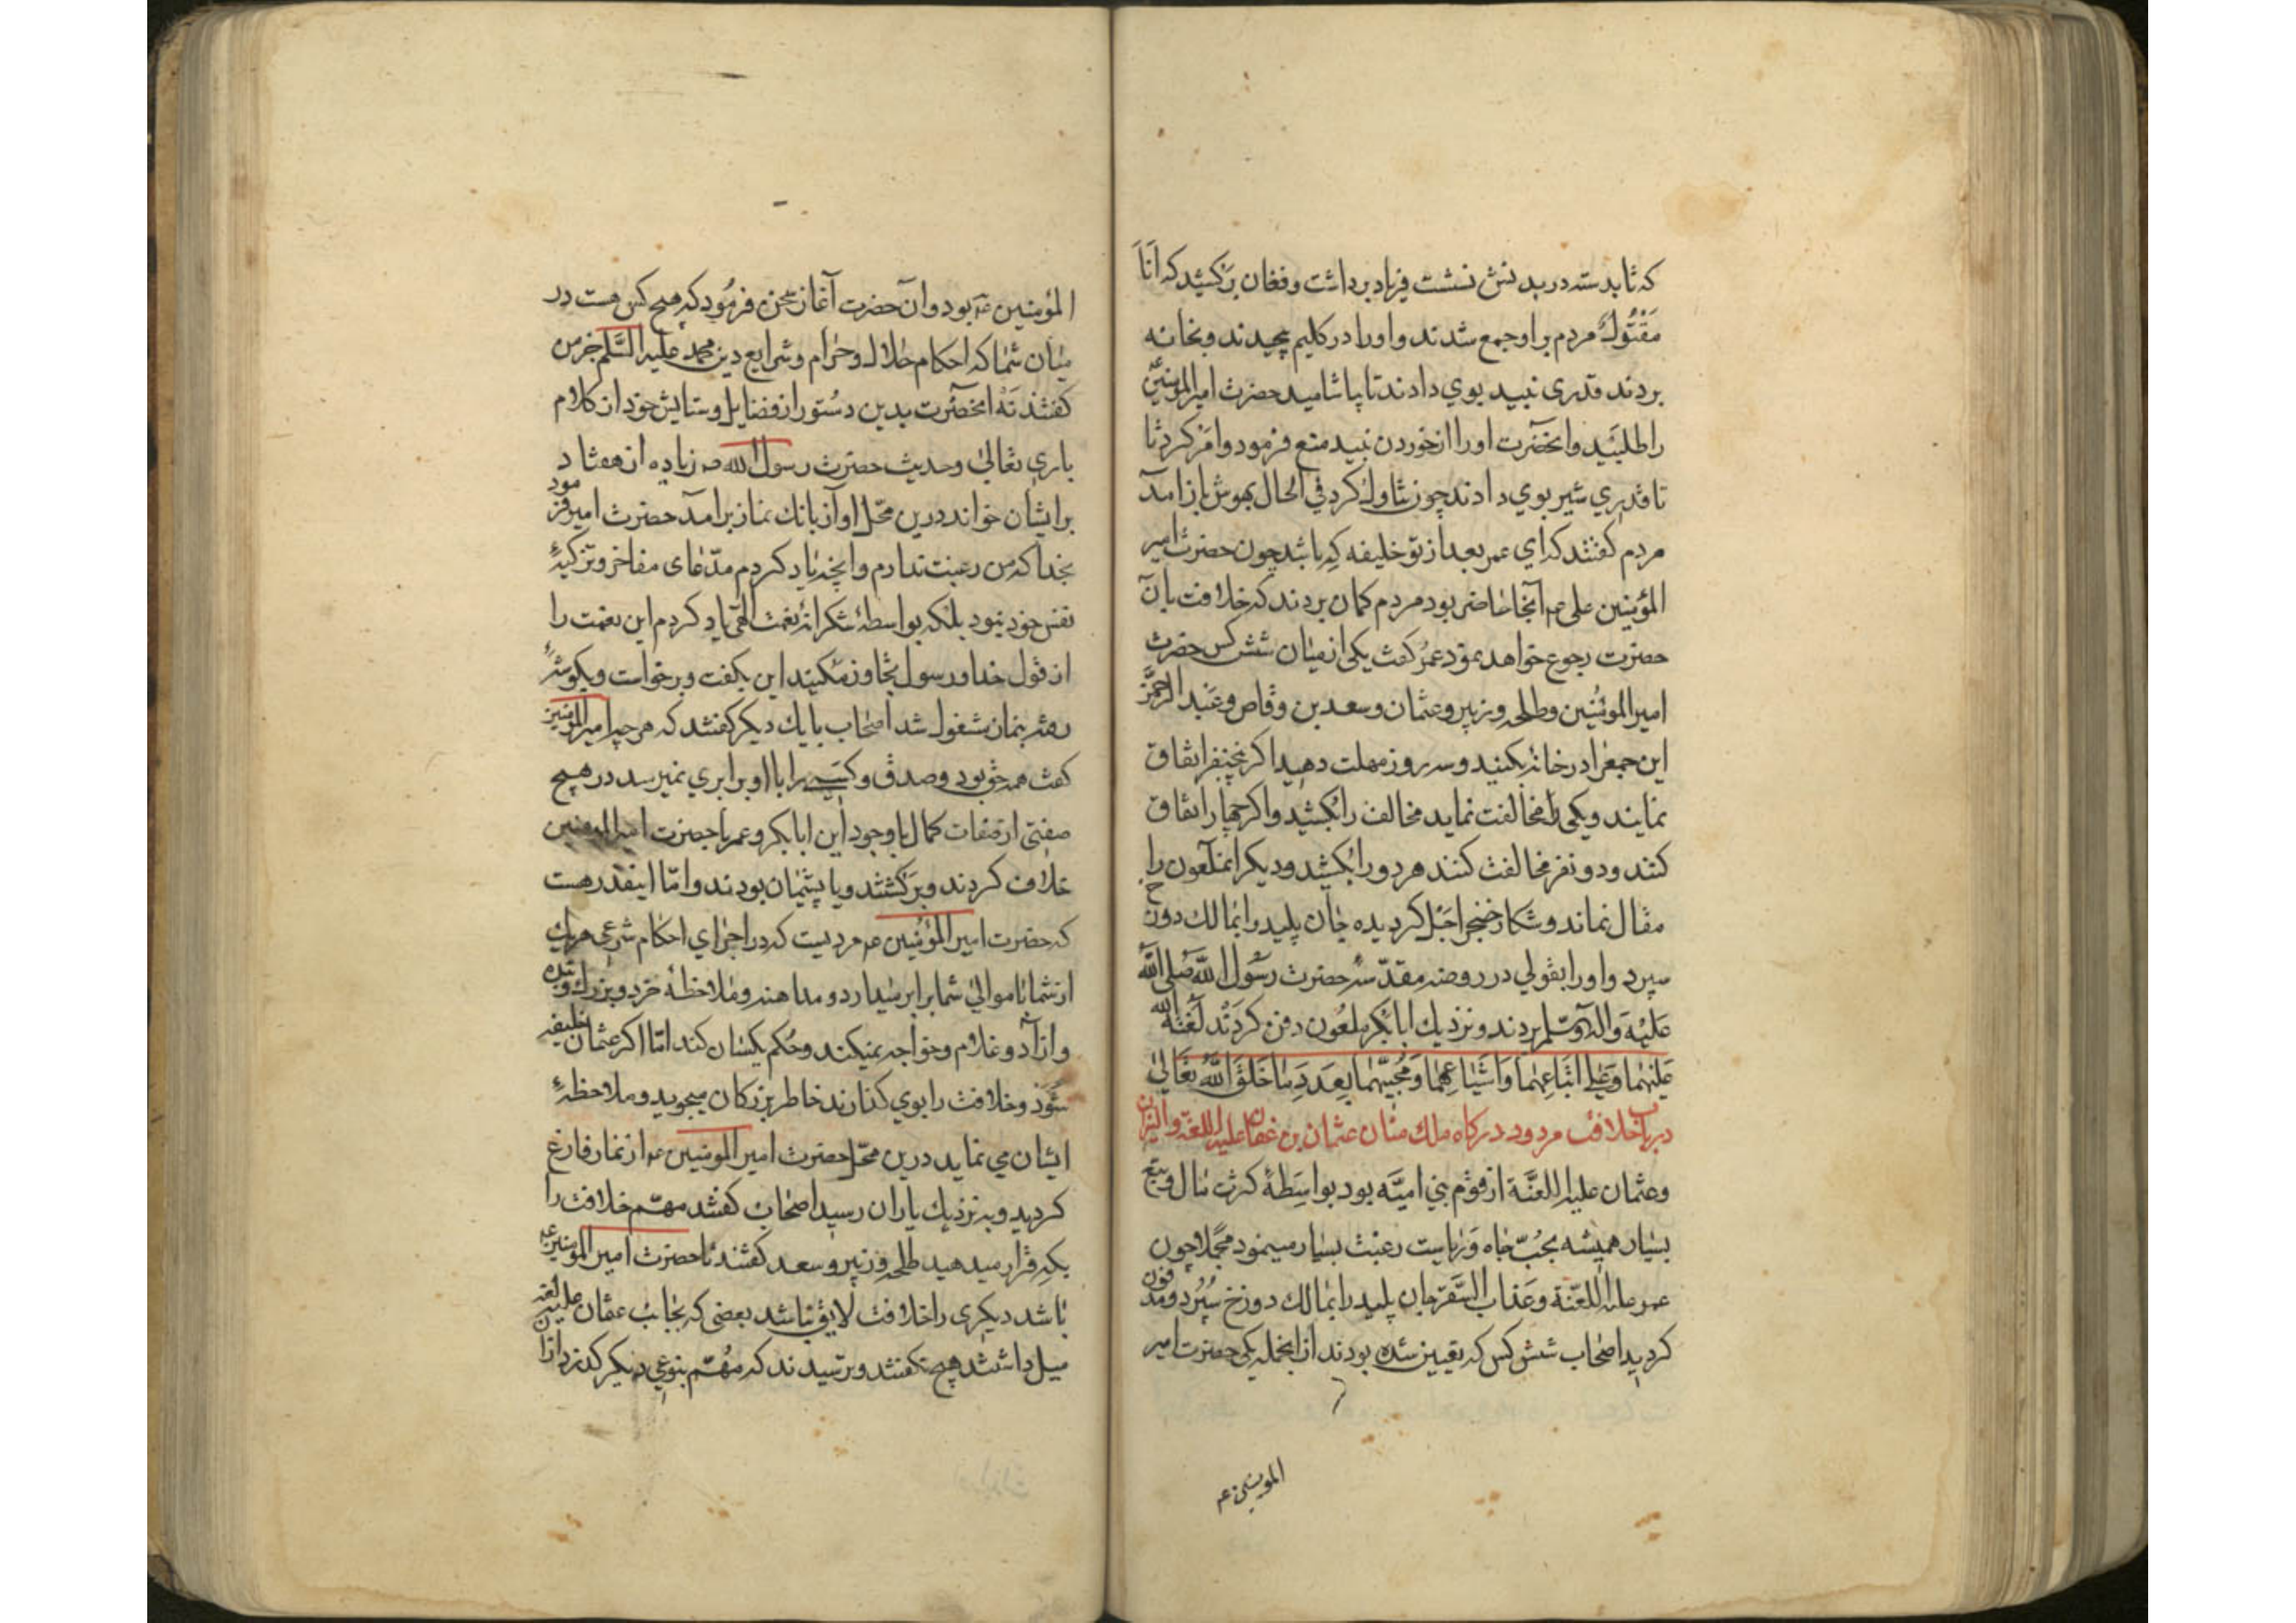 که تا بدسته در بدنش نشست فریاد برداشت و فغان برکشید که اَنَا
مَقْتُولٌ مردم بر او جمع شدند و او را در کلیم پیچیدند و بخانه
بردند قدری نبید بوی دادند تا بیاشامید حضرت امیرالمؤمنین
را طلبید و آنحضرت او را از خوردن نبید منع فرمود و امر کرد تا
تا قدری شیر بوی دادند چون تناول کرد فی الحال بهوش باز آمد
مردم کفتند که ای عمر بعد از تو خلیفه که باشد چون حضرت امیر
المؤمنین علی عم آنجا حاضر بود مردم کمان بردند که خلافت بآن
حضرت رجوع خواهد نمود عمر کفت یکی از میان شش کس حضرت
امیرالمؤمنین و طلحه و زبیر و عثمان و سعد بن وقاص و عبدالرحمن
این جمع را در خانه کنید و سه روز مهلت دهید اکر پنج نفر اتفاق
نمایند و یکی مخالفت نماید مخالف را بکشید و اکر چهار اتفاق
کنند و دو نفر مخالفت کنند هر دو را بکشید و دیکر آنملعون را
مقال نماند و شکار خنجر اجل کردیده جان پلید را بمالک دوزخ
سپرد و او را بقولی در روضه مقدسه حضرت رسول الله صلی الله
علیه و اله و سلم بردند و نزدیک ابابکر ملعون دفن کردند لعنة الله
علیهما و علی اتباعهما و اشیاعهما و محبیهما بعدد ما خلق الله تعالی
در باب خلافت مردود درکاه ملک منان عثمان بن عفان علیه اللعنة و النیران
و عثمان علیه اللعنة از قوم بنی امیه بود بواسطهٔ کثرت مال و تبع
بسیار همیشه بحب جاه و ریاست رغبت بسیار مینمود مجملا چون
عمر علیه اللعنة و عذاب السقر جان پلید را بمالک دوزخ سپرد و مدفون
کردید اصحاب شش کس که تعیین شده بودند از آنجمله یکی حضرت امیر
المومنین عم
المؤمنین عم بود و آن حضرت آغاز سخن فرمود که هیچ کس هست در
میان شما که احکام حلال و حرام و شرایع دین محمد علیه السلم جز من
کفتند نه آنحضرت بدین دستور از فضایل و ستایش خود از کلام
باری تعالی و حدیث حضرت رسول الله صم زیاده از هفتاد
بر ایشان خواند درین محل آواز بانک نماز برآمد حضرت امیر فرمود
بخدا که من رغبت ندارم و آنچه یاد کردم مدعای مفاخر و تزکیهٔ
نفس خود نبود بلکه بواسطهٔ شکرانهٔ نعمت الهی یاد کردم این نعمت را
از قول خدا و رسول تجاوز مکنید این بکفت و برخواست و بکوشهٔ
رفته بنماز مشغول شد اصحاب با یک دیکر کفتند که هر چه امیرالمؤمنین
کفت همه حق بود و صدق و کسی را با او برابری نمیرسد در هیچ
صفتی از صفات کمال با وجود این ابابکر و عمر با حضرت امیرالمؤمنین
خلاف کردند و برکشتند و یا پشیمان بودند و اما اینقدر هست
که حضرت امیرالمؤمنین عم مردیست که در اجرای احکام شرعی هر یک
از شما با موالی شما برابر میدارد و مداهنه و ملاحظهٔ خرد و بزرک و بنده
و آزاد و غلام و خواجه نمیکند و حکم یکسان کند اما اکر عثمان خلیفه
شود و خلافت را بوی کذارند خاطر بزرکان میجوید و ملاحظهٔ
ایشان می نماید درین محل حضرت امیرالمومنین عم از نماز فارغ
کردید و به نزدیک یاران رسید اصحاب کفتند مهم خلافت را
بکه قرار میدهید طلحه و زبیر و سعد کفتند تا حضرت امیرالمؤمنین عم
باشد دیکری را خلافت لایق نباشد بعضی که بجانب عفان علیه لعنه
میل داشتند هیچ نکفتند و ترسیدند که مهم بنوعی دیکر کذرد